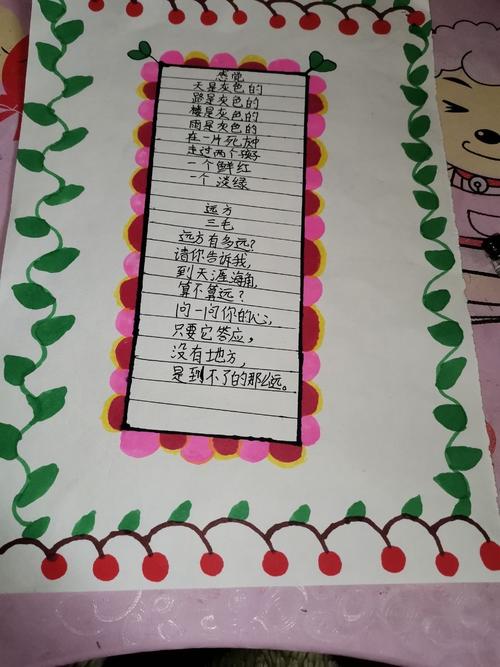 感觉
天是灰色的
路是灰色的
楼是灰色的
雨是灰色的
在一片死灰中
走过两个孩子
一个鲜红
一个淡绿
远方
三毛
远方有多远？
请你告诉我，
到天涯海角，
算不算远？
问一问你的心，
只要它答应，
没有地方，
是到不了的那么远。